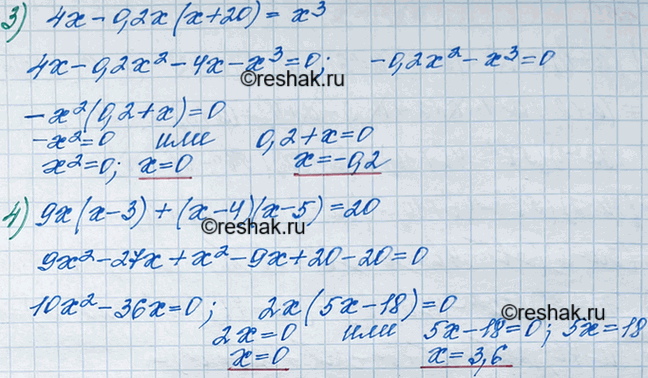 3) 4x - 0,2x(x+20) = x³
4x - 0,2x² - 4x - x³ = 0; -0,2x² - x³ = 0
©reshak.ru
-x²(0,2+x) = 0
-x² = 0 или 0,2+x = 0
x² = 0; x = 0 x = -0,2
4) 9x(x-3) + (x-4)(x-5) = 20
9x² - 27x + x² - 9x + 20 - 20 = 0
10x² - 36x = 0; 2x(5x-18) = 0
©reshak.ru
2x = 0 или 5x-18 = 0; 5x = 18
x = 0 x = 3,6